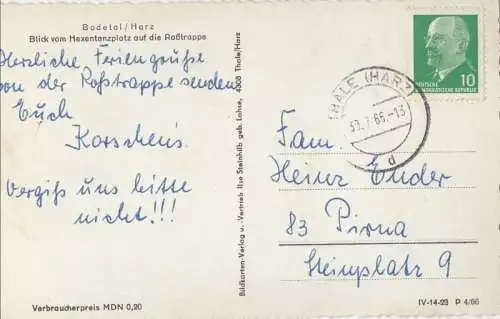 Bodetal/Harz
Blick vom Hexentanzplatz auf die Roßtrappe
Herzliche Feriengrüße
von der Roßtrappe senden
Euch
Korschens.
Vergiß uns bitte
nicht!!!
Verbraucherpreis MDN 0,20
Bildkarten-Verlag u. -Vertrieb Ilse Steinbiß geb. Lohse, 4308 Thale/Harz
10
DEUTSCHE
DEMOKRATISCHE REPUBLIK
THALE (HARZ)
30.7.66.-13
d
Fam.
Heinz Ender
83 Pirna
Steinplatz 9
IV-14-23 P 4/66